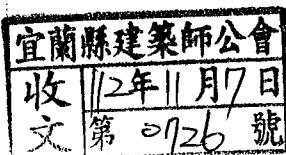 宜蘭縣建築師公會
收文
112年11月7日
第0726號